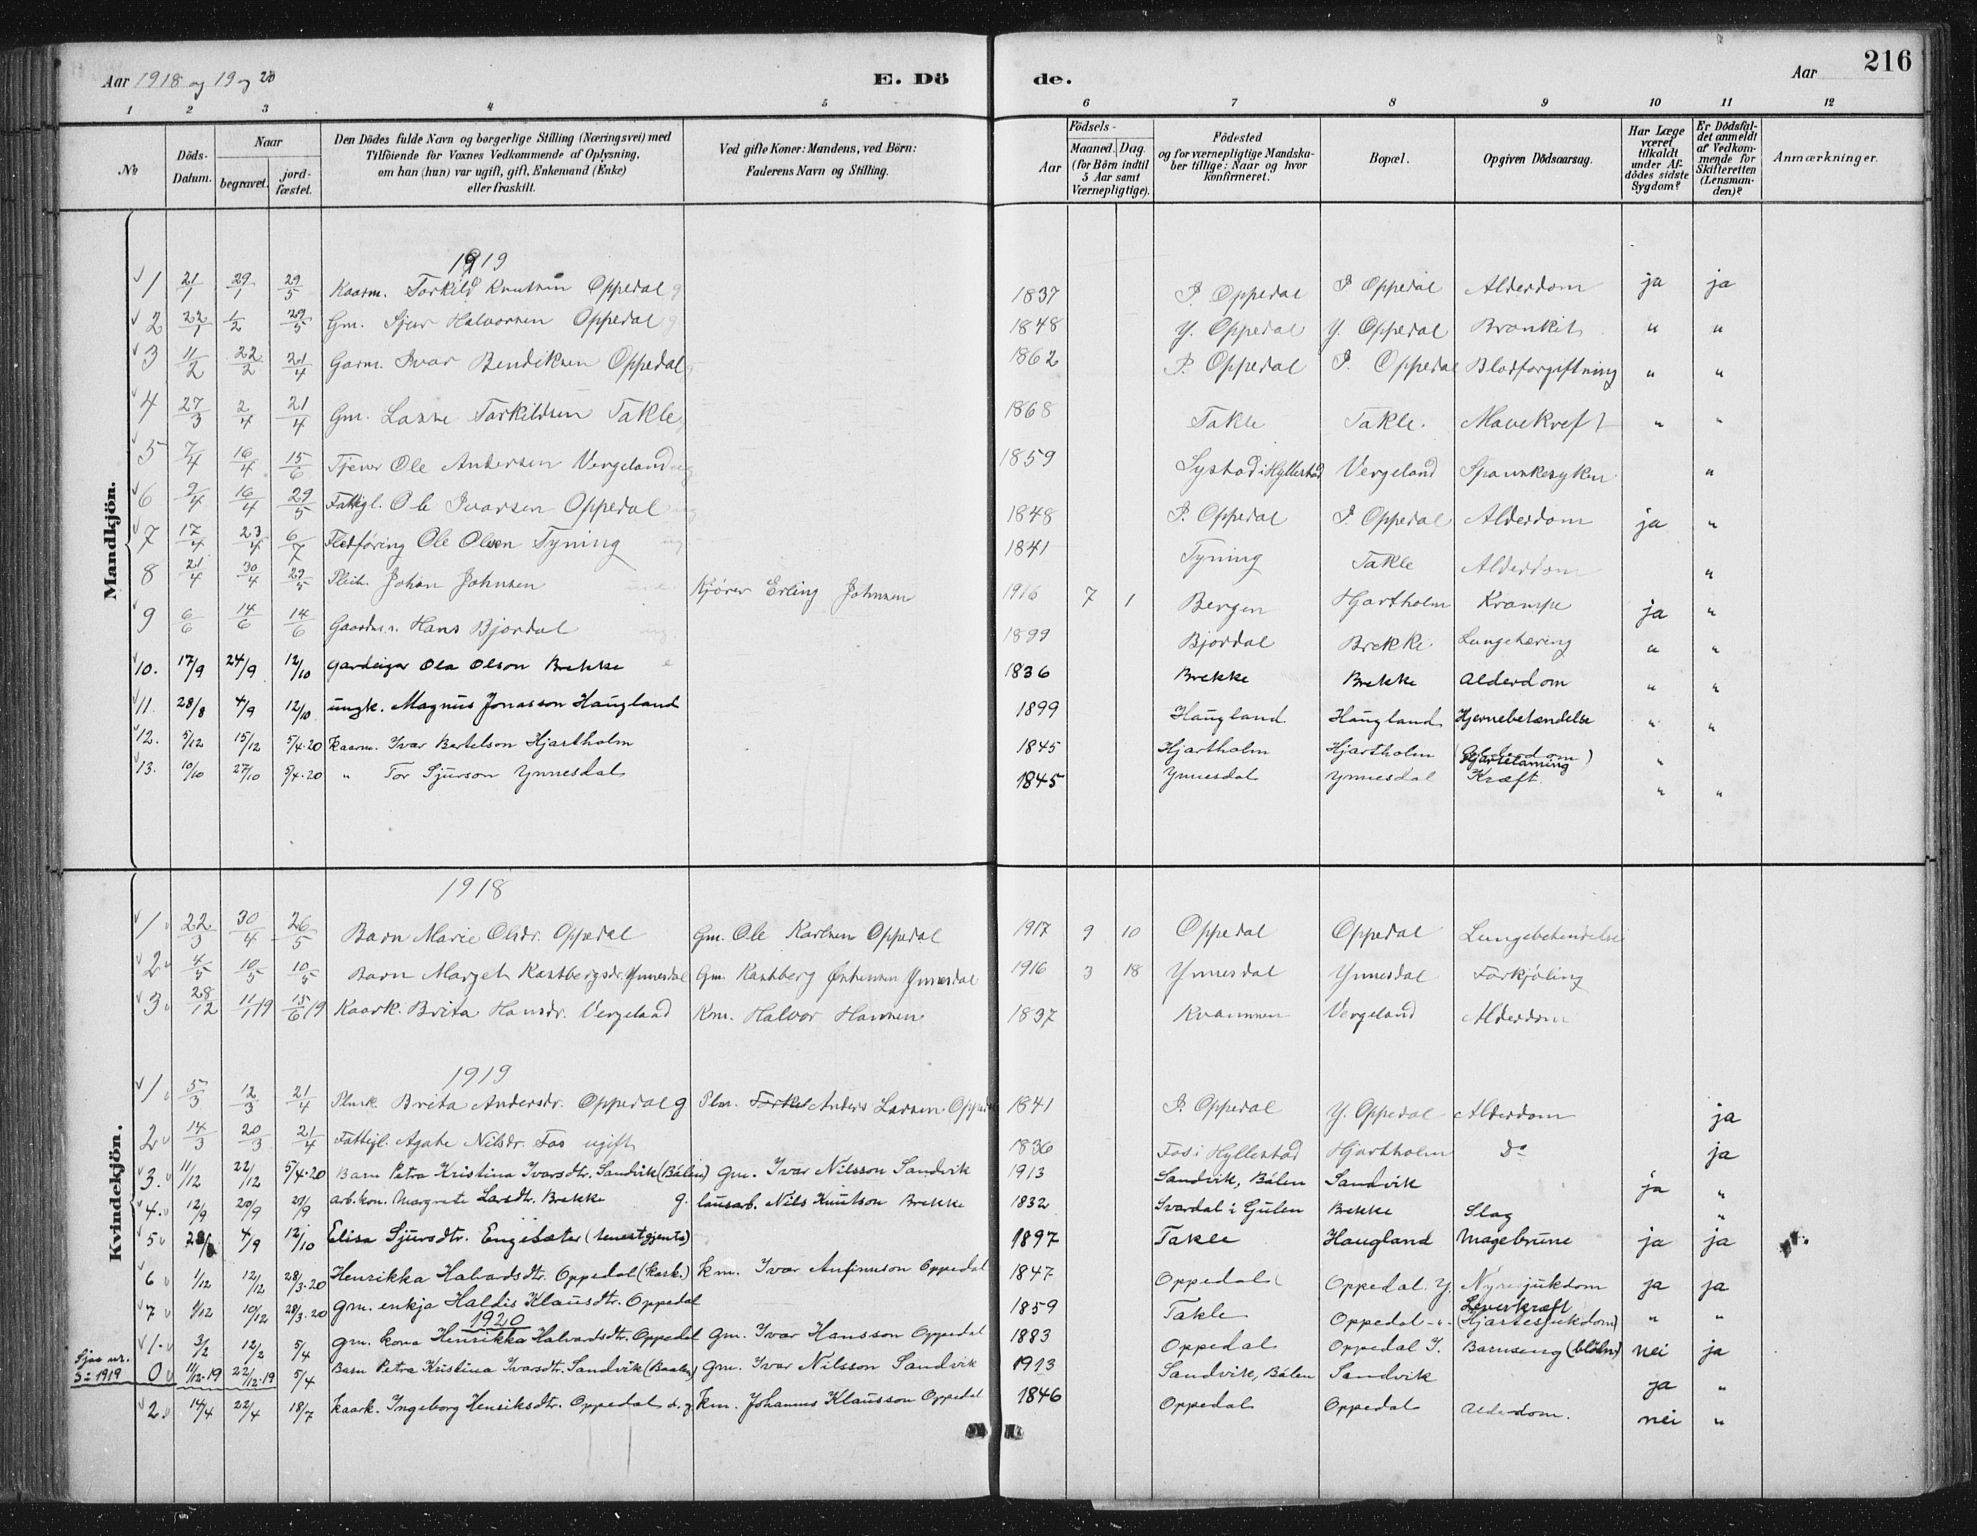 Aar 1918 og 19 og 20 E. Dö de. Aar 216
1 2 3 4 5 6 7 8 9 10 11 12
No
Döds-Datum.
Naar
begravet. jordfæstet.
Den Dödes fulde Navn og borgerlige Stilling (Næringsvei) med
Tilföiende for Voxnes Vedkommende af Oplysning,
om han (hun) var ugift, gift, Enkemand (Enke)
eller fraskilt.
Ved gifte Koner: Mandens, ved Börn:
Faderens Navn og Stilling.
Födsels-
Aar
Maaned. Dag.
(for Börn indtil
5 Aar samt
Værnepligtige).
Födested
og for værnepligtige Mandska-
ber tillige: Naar og hvor
konfirmeret.
Bopæl.
Opgiven Dödsaarsag.
Har Læge
været
tilkaldt
under Af-
dödes sidste
Sygdom?
Er Dödsfal-
det anmeldt
af Vedkom-
mende for
Skifteretten
(Lensman-
den)?
Anmærkninger.
Mandkjön.
1919
1 21/1 29/1 29/5 Kaarm. Torkild Knutsen Oppedal g 1837 I. Oppedal I. Oppedal Alderdom ja ja
2 22/1 1/2 29/5 Gm. Sjur Halvorsen Oppedal g 1848 Y. Oppedal Y. Oppedal Bronkit " "
3 11/2 22/2 21/4 Garm. Ivar Bendiksen Oppedal g 1862 I. Oppedal I. Oppedal Blodforgiftning " "
4 27/3 2/4 21/4 Gm. Lasse Torkildsen Takle 1868 Takle Takle. Mavekreft " "
5 7/4 16/4 15/6 Tjener Ole Andersen Vergeland ug 1859 Systad i Hyllestad Vergeland Spanskesyken "
6 9/4 16/4 29/5 Fattigl. Ole Ivarsen Oppedal ug 1848 I. Oppedal I. Oppedal Alderdom ja "
7 17/4 23/4 6/7 Fledføring Ole Olsen Tyning ug 1841 Tyning Takle Alderdom "
8 21/4 30/4 29/5 Pleib. Johan Johnsen Kjører Erling Johnsen 1916 7 1 Bergen Hjartholm Krampe ja "
9 6/6 14/6 14/6 Hans Bjordal ug. 1899 Bjordal Brekke Lungetæring " "
10. 17/9 24/9 12/10 Gardeigar Ola Olson Brekke e 1836 Brekke Brekke Alderdom " "
11. 28/8 4/9 12/10 ungk. Magnus Jonasson Haugland 1899 Haugland Haugland Hjernebetændelse " "
12. 5/12 15/12 5/4-20 Kaarm. Ivar Bertelson Hjartholm 1845 Hjartholm Hjartholm "
13. 10/10 27/10 5/4-20 " Tor Sjurson Ynnesdal 1845 Ynnesdal Ynnesdal Kræft " "
Kvindekjön.
1918
1 22/3 30/4 26/5 Barn Marie Olsdr. Oppedal Gm. Ole Karlsen Oppedal 1917 9 10 Oppedal Oppedal Lungebetendelse
2 4/5 10/5 10/5 Barn Marget Rastbergsdr. Ynnesdal Gm. Rastberg Ynnesdal 1916 3 18 Ynnesdal Ynnesdal Forkjøling
3 28/12 11/1 19 15/6 19 Kaark. Brita Hansdr. Vergeland Km. Halvor Hansen 1837 Vergeland Alderdom
1919
1 5/3 12/3 21/4 Brita Andersdr. Oppedal g Plm. Anders Larsen Oppedal 1841 I. Oppedal Y. Oppedal Alderdom ja
2 14/3 20/3 21/4 Fattigl. Agate Nilsdr. Fos ugift 1836 Fos i Hyllestad Hjartholm Do ja
3. 11/12 22/12 5/4-20 Barn Petra Kristina Ivarsdtr. Sandvik (Bålen) Gm. Ivar Nilsson Sandvik 1913 Sandvik, Bålen Sandvik ja "
4. 12/9 20/9 20/9 arb.kon. Margrete Larsdtr. Brekke g. lausarb. Nils Knutson Brekke 1832 Svardal i Gulen Brekke Slag "
5 4/9 12/10 Elisa Sjursdtr. Engesæter (tenestgjenta) 1897 Takle Haugland Magebrune ja ja
6 1/12 12/12 28/3-20 Henrikka Halvardsdtr. Oppedal (kark.) Km. Ivar Anfinnson Oppedal 1847 Oppedal Oppedal Y. Nyresjukdom ja ja
7 1/12 10/12 28/3-20 Gm. enkja Haldis Klausdtr. Oppedal 1859 Takle Oppedal -"- Leverkræft (Hjartesjukdom) " "
1920
1. 3/2 12/2 5/4 Gm. kona Henrikka Halvardsdtr. Oppedal Gm. Ivar Hansson Oppedal 1883 Oppedal Oppedal I. Barnseng (blødn) nei ja
Sjaa nr. 3 : 1919 0 11/12-19 22/12-19 5/4 Barn Petra Kristina Ivarsdtr. Sandvik (Baalen) Gm. Ivar Nilsson Sandvik 1913 Sandvik, Bålen Sandvik ja "
2. 14/4 22/4 18/7 Kaark. Ingeborg Henriksdtr. Oppedal Km. Johannes Klausson Oppedal 1846 Oppedal Oppedal Alderdom. nei "